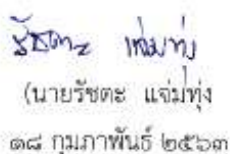 รัชตะ แจ่มทุ่ง
(นายรัชตะ แจ่มทุ่ง
๑๘ กุมภาพันธ์ ๒๕๖๓